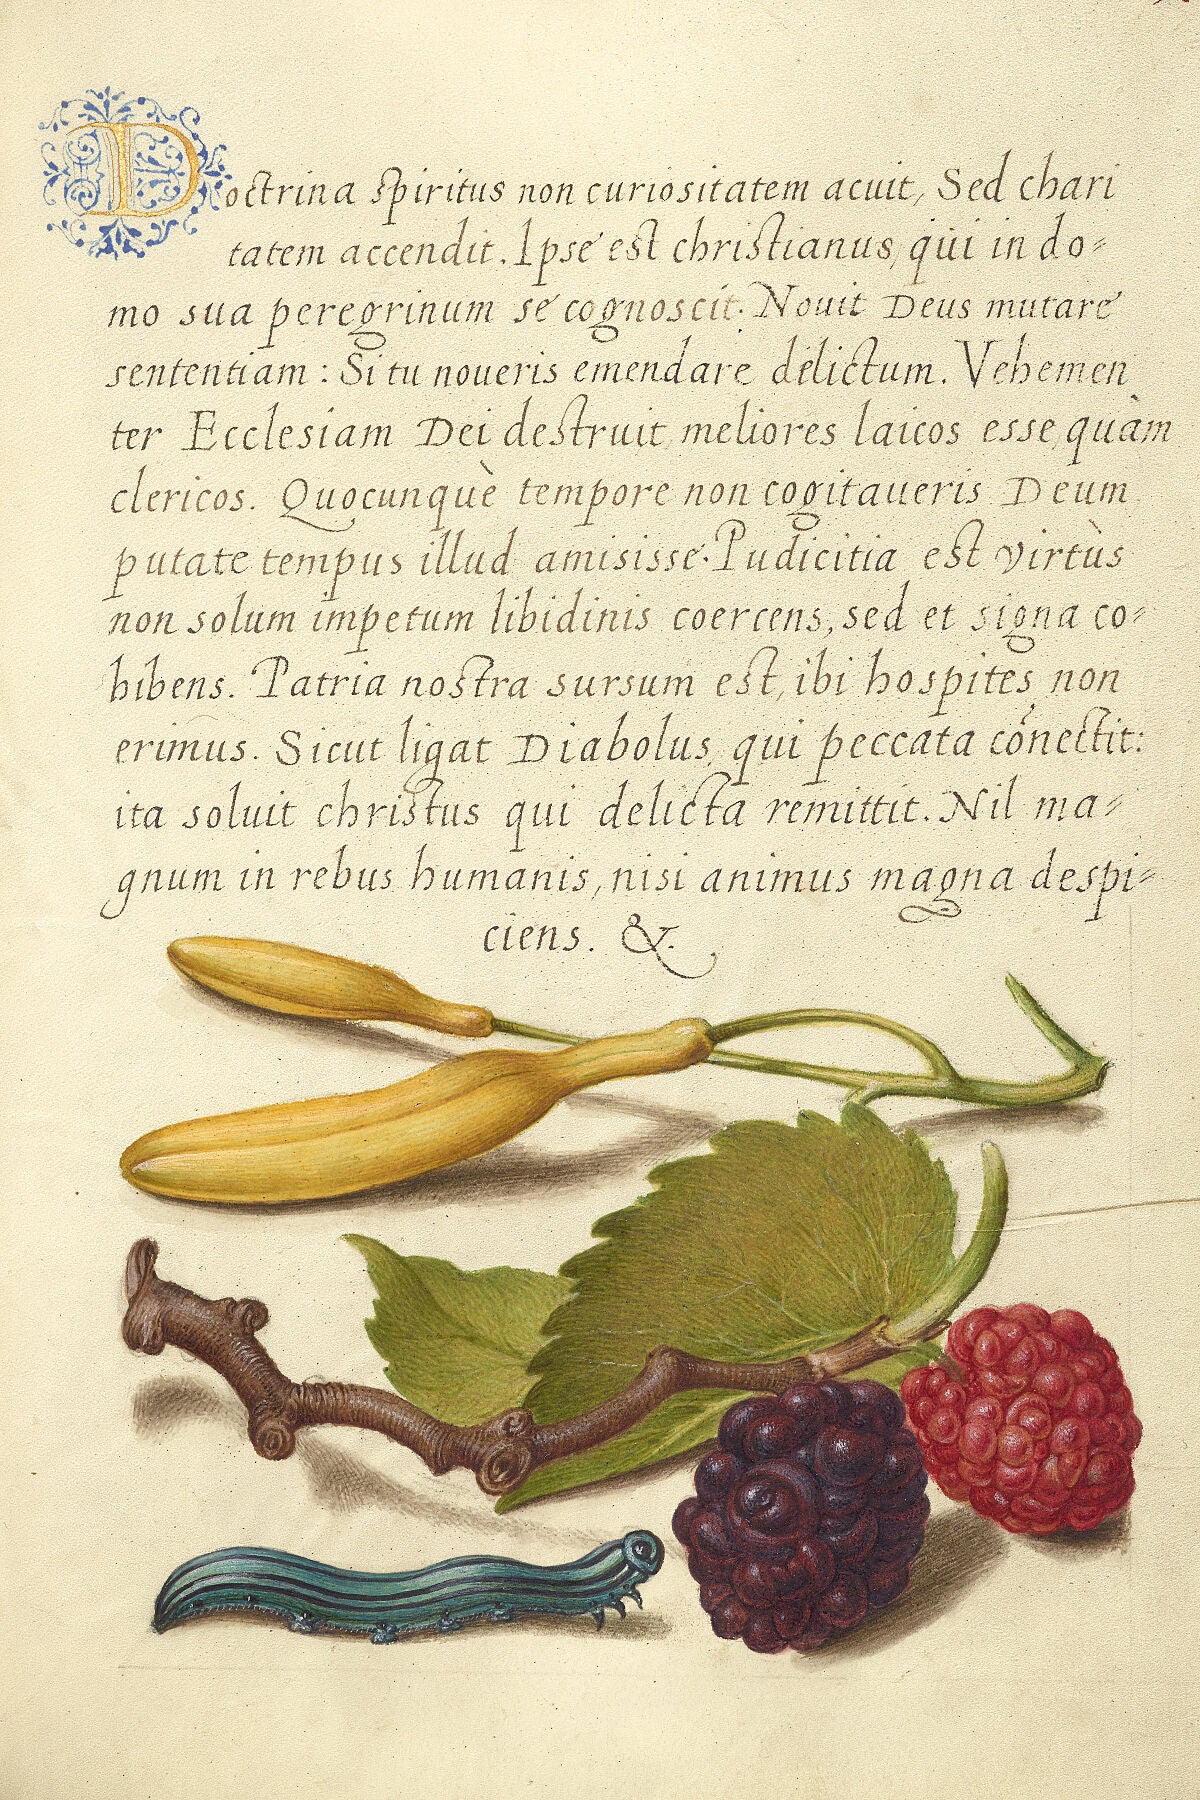 Doctrina spiritus non curiositatem acuit, Sed chari
tatem accendit. Ipse est christianus, qui in do=
mo sua peregrinum se cognoscit. Nouit Deus mutare
sententiam: Si tu noueris emendare delictum. Vehemen
ter Ecclesiam Dei destruit, meliores laicos esse, quàm
clericos. Quocunquè tempore non cogitaueris Deum
putate tempus illud amisisse. Pudicitia est virtùs
non solum impetum libidinis coercens, sed et signa co=
hibens. Patria nostra sursum est, ibi hospites non
erimus. Sicut ligat Diabolus, qui peccata cōnectit:
ita soluit christus qui delicta remittit. Nil ma=
gnum in rebus humanis, nisi animus magna despi=
ciens. &.